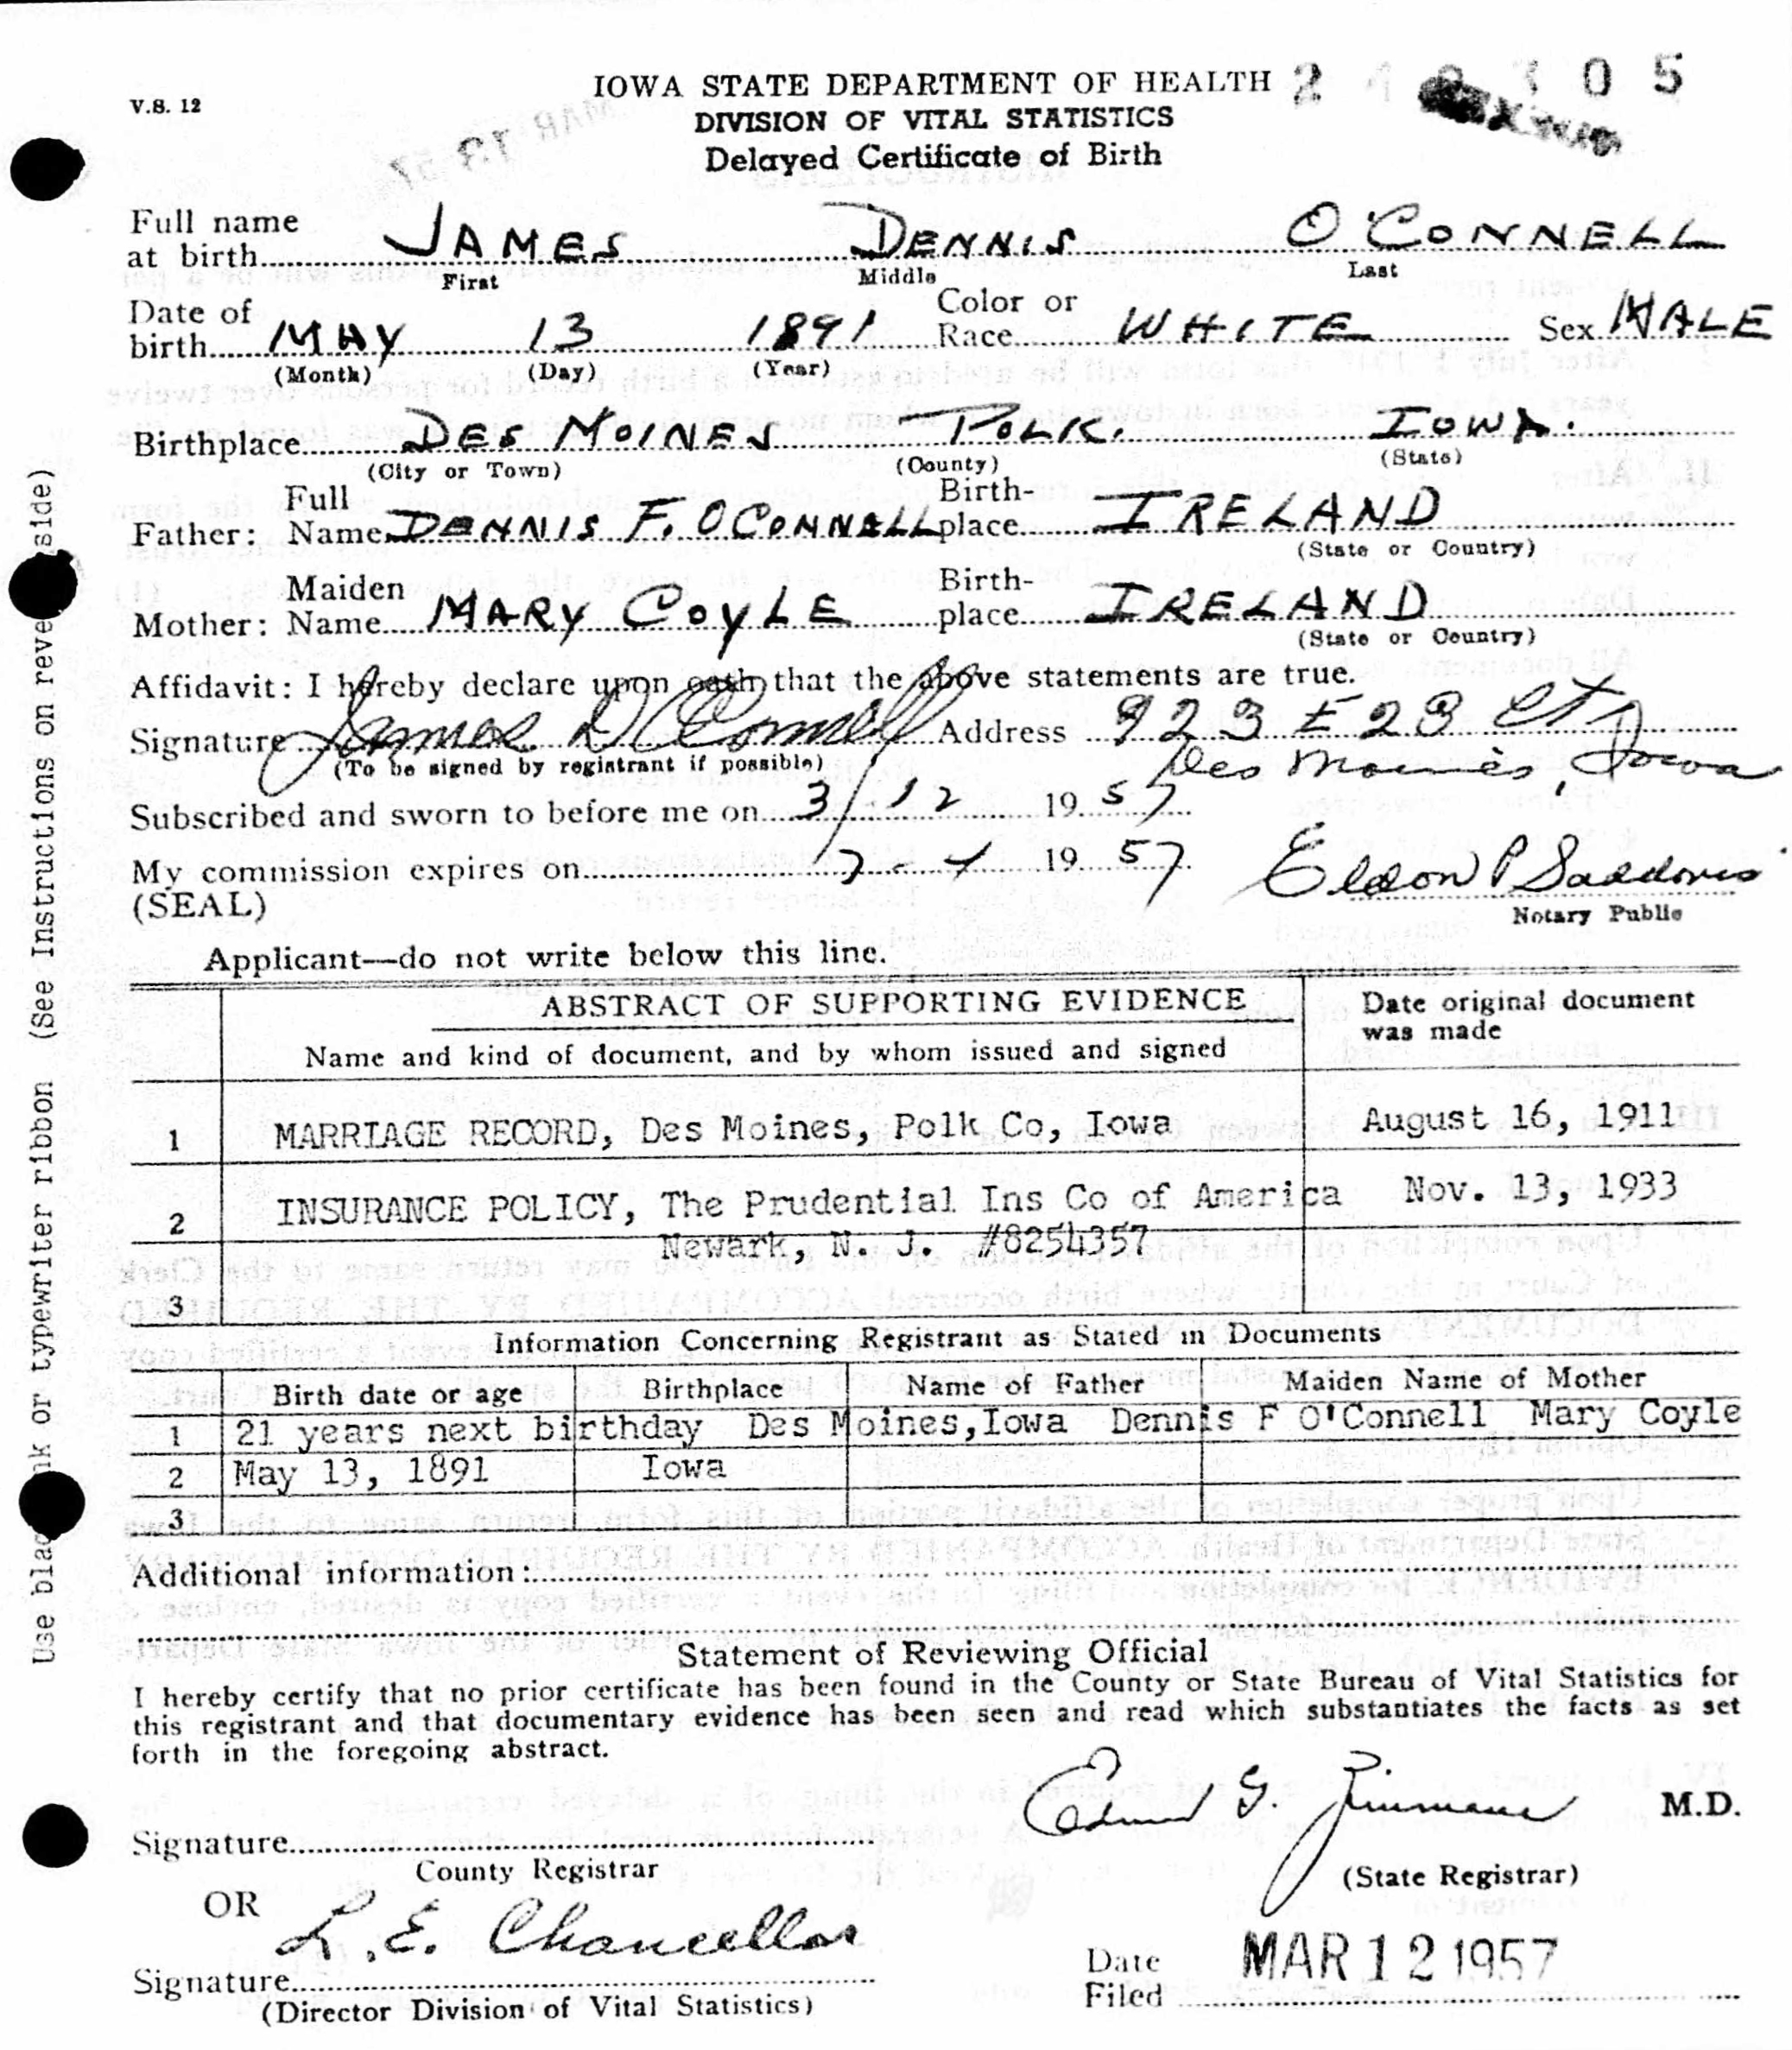 V.S. 12
IOWA STATE DEPARTMENT OF HEALTH
DIVISION OF VITAL STATISTICS
Delayed Certificate of Birth
2 4 0 5
MAR 12 57
Full name
at birth JAMES DENNIS O'CONNELL
First Middle Last
Date of
birth MAY 13 1891 Color or Race WHITE Sex MALE
(Month) (Day) (Year)
Birthplace DES MOINES POLK. IOWA.
(City or Town) (County) (State)
Father: Full Name DENNIS F. OCONNELL Birth-place IRELAND
(State or Country)
Mother: Maiden Name MARY COYLE Birth-place IRELAND
(State or Country)
Affidavit: I hereby declare upon oath that the above statements are true.
Signature James D O'Connell Address 923 E 23 Ct
(To be signed by registrant if possible) Des Moines, Iowa
Subscribed and sworn to before me on 3/12 1957
My commission expires on 7-4 1957
(SEAL)
Eldon P Saddoris
Notary Public
Applicant—do not write below this line.
ABSTRACT OF SUPPORTING EVIDENCE
Name and kind of document, and by whom issued and signed
Date original document
was made
1 MARRIAGE RECORD, Des Moines, Polk Co, Iowa August 16, 1911
2 INSURANCE POLICY, The Prudential Ins Co of America Nov. 13, 1933
Newark, N. J. #8254357
3
Information Concerning Registrant as Stated in Documents
Birth date or age Birthplace Name of Father Maiden Name of Mother
1 21 years next birthday Des Moines,Iowa Dennis F O'Connell Mary Coyle
2 May 13, 1891 Iowa
3
Additional information:
Statement of Reviewing Official
I hereby certify that no prior certificate has been found in the County or State Bureau of Vital Statistics for
this registrant and that documentary evidence has been seen and read which substantiates the facts as set
forth in the foregoing abstract.
Signature
County Registrar
Edmund G. Zimmerer M.D.
(State Registrar)
OR
L. E. Chancellor
Signature
(Director Division of Vital Statistics)
Date
Filed MAR 12 1957
Use black ink or typewriter ribbon (See Instructions on reverse side)